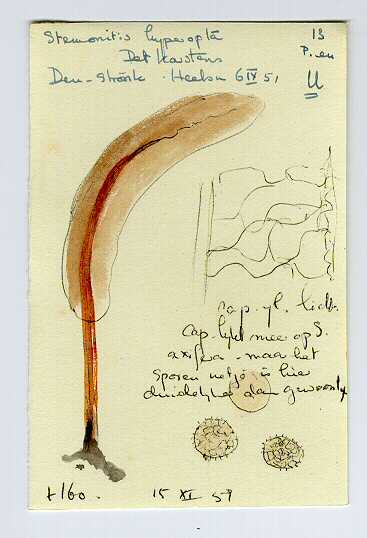 Stemonitis hyperopta
Det Karstens
Den-strònk. Heelsu 6 IV 51
13
P. en
U
Cap. yl. licht.
Cap. lijkt mee op S.
axifera - maar het
sporen netje is hier
duidelijker dan gewoonlijk
±160.
15 XI 51